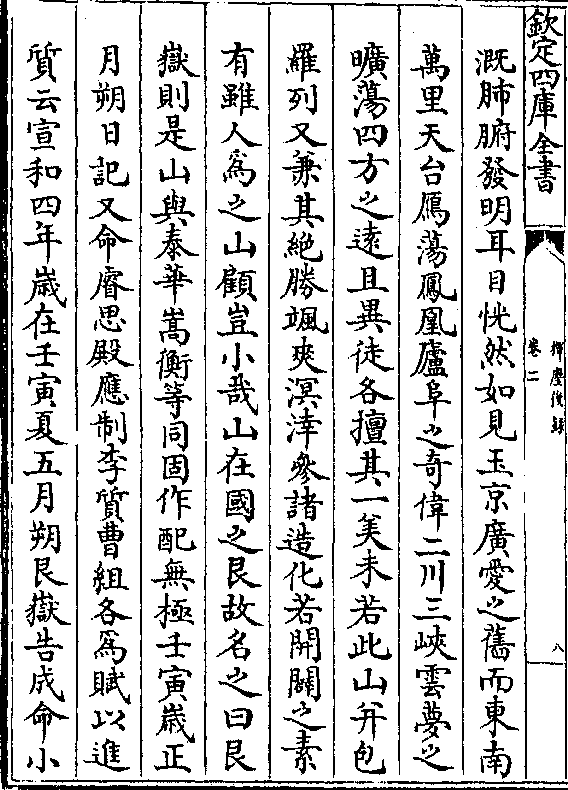 欽定四庫全書
揮麈後錄
卷二
八
溉肺腑發明耳目恍然如見玉京廣愛之舊而東南
萬里天台鴈蕩鳳凰廬阜之奇偉二川三峽雲夢之
曠蕩四方之逺且異徒各擅其一美未若此山并包
羅列又兼其絶勝颯爽溟涬參諸造化若開闢之素
有雖人為之山顧豈小哉山在國之艮故名之曰艮
嶽則是山與泰華嵩衡等同固作配無極壬寅嵗正
月朔日記又命睿思殿應制李質曹組各為賦以進
質云宣和四年嵗在壬寅夏五月朔艮嶽告成命小